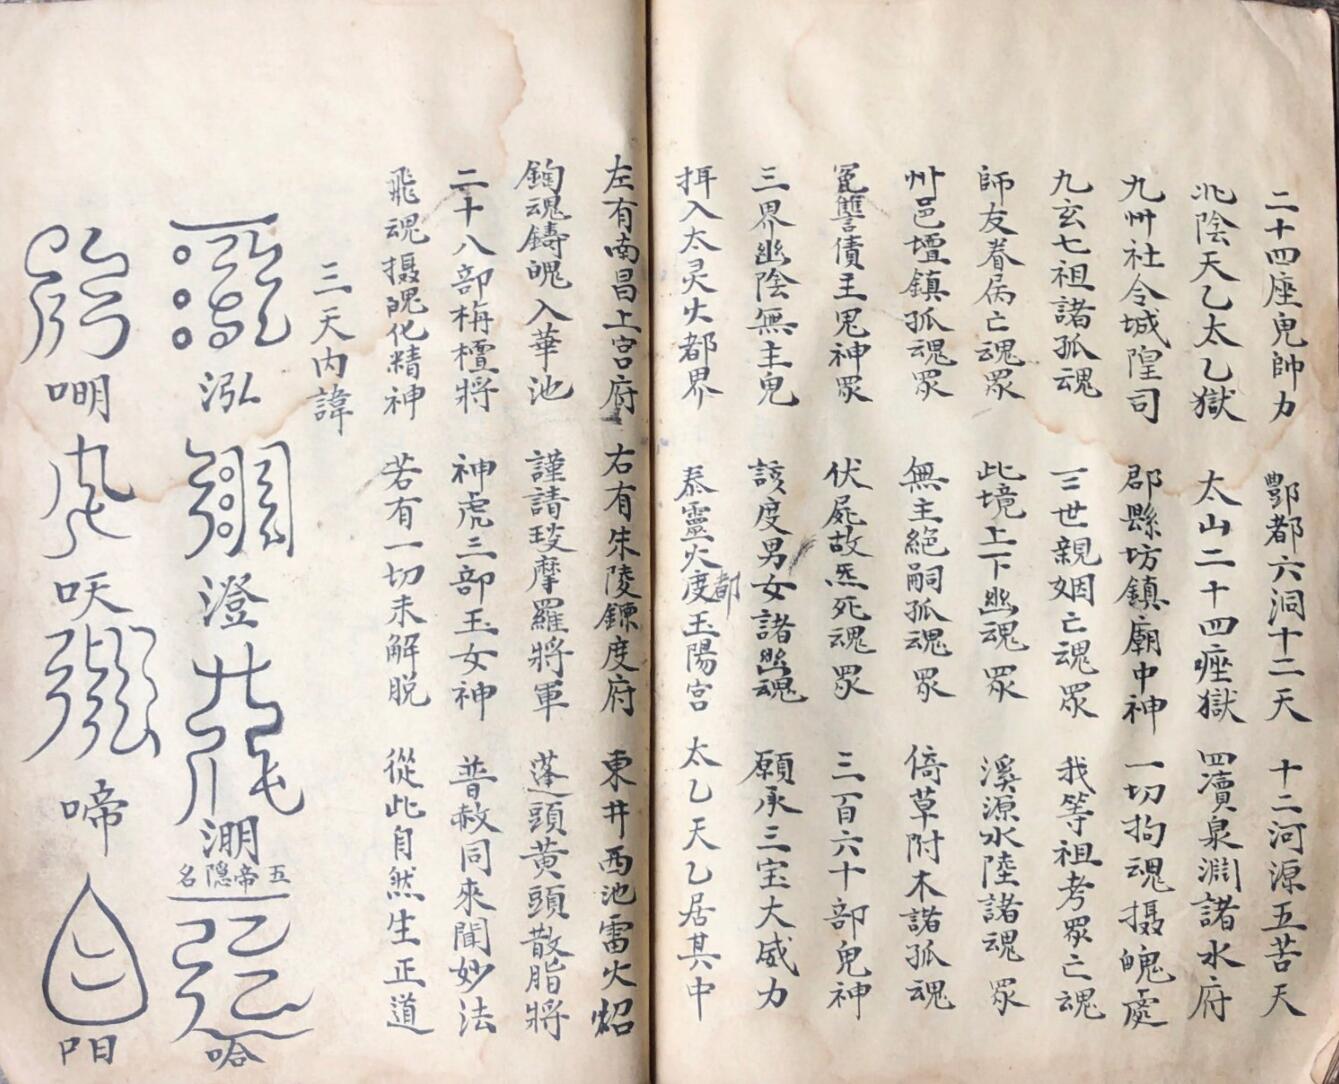 二十四座鬼帥力 酆都六洞十二天 十二河源五苦天
北陰天乙太乙獄 太山二十四座獄 四瀆泉淵諸水府
九州社令城隍司 郡縣坊鎮廟中神 一切拘魂摄魄處
九玄七祖諸孤魂 三世親姻亡魂眾 我等祖考眾亡魂
師友眷属亡魂眾 此境上下幽魂眾 溪源水陸諸魂眾
州邑壇鎮孤魂眾 無主絕嗣孤魂眾 倚草附木諸孤魂
冤讐債主鬼神眾 伏屍故炁死魂眾 三百六十部鬼神
三界幽陰無主鬼 該度男女諸幽魂 願承三宝大威力
拝入太灵火都界 泰靈火度都玉陽宮 太乙天乙居其中
左有南昌上宫府 右有朱陵鍊度府 東井西池雷火炤
鉤魂鑄魄入華池 謹請琰摩羅將軍 蓬頭黄頭散脂將
二十八部栴檀將 神虎三部玉女神 普赦同來聞妙法
飛魂摄魄化精神 若有一切未解脱 從此自然生正道
三天内諱
泓 澄 淜
五帝隠名
哈
明 吷 啼 阳